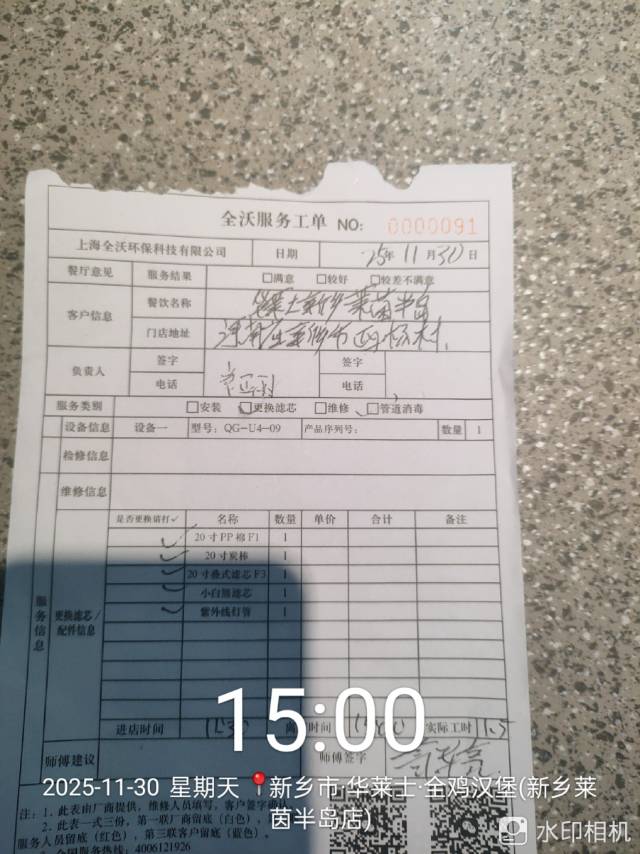 全沃服务工单 NO: 0000091
上海全沃环保科技有限公司 日期 25年 11月30日
餐厅意见 服务结果 □满意 □较好 □较差不满意
客户信息 餐饮名称 华莱士新乡莱茵半岛
门店地址
负责人 签字 签字
电话 电话
服务类别 □安装 □更换滤芯 □维修 □管道消毒
设备信息 设备一 型号: QG-U4-09 产品序列号: 数量 1
检修信息
维修信息
服务信息
更换滤芯/配件信息
是否更换请打✓ 名称 数量 单价 合计 备注
✓ 20寸PP棉F1 1
✓ 20寸炭棒 1
✓ 20寸叠式滤芯F3 1
✓ 小白熊滤芯 1
✓ 紫外线灯管 1
进店时间 时间 实际工时 1.5
师傅建议 师傅签字
15:00
2025-11-30 星期天 新乡市·华莱士·全鸡汉堡(新乡莱茵半岛店)
注: 1、此表由厂商提供, 维修人员填写, 客户签字确认
2、此表一式三份, 第一联厂商留底(白色),
服务人员留底(红色), 第三联客户留底(蓝色)。
全国服务热线: 4006121926
水印相机